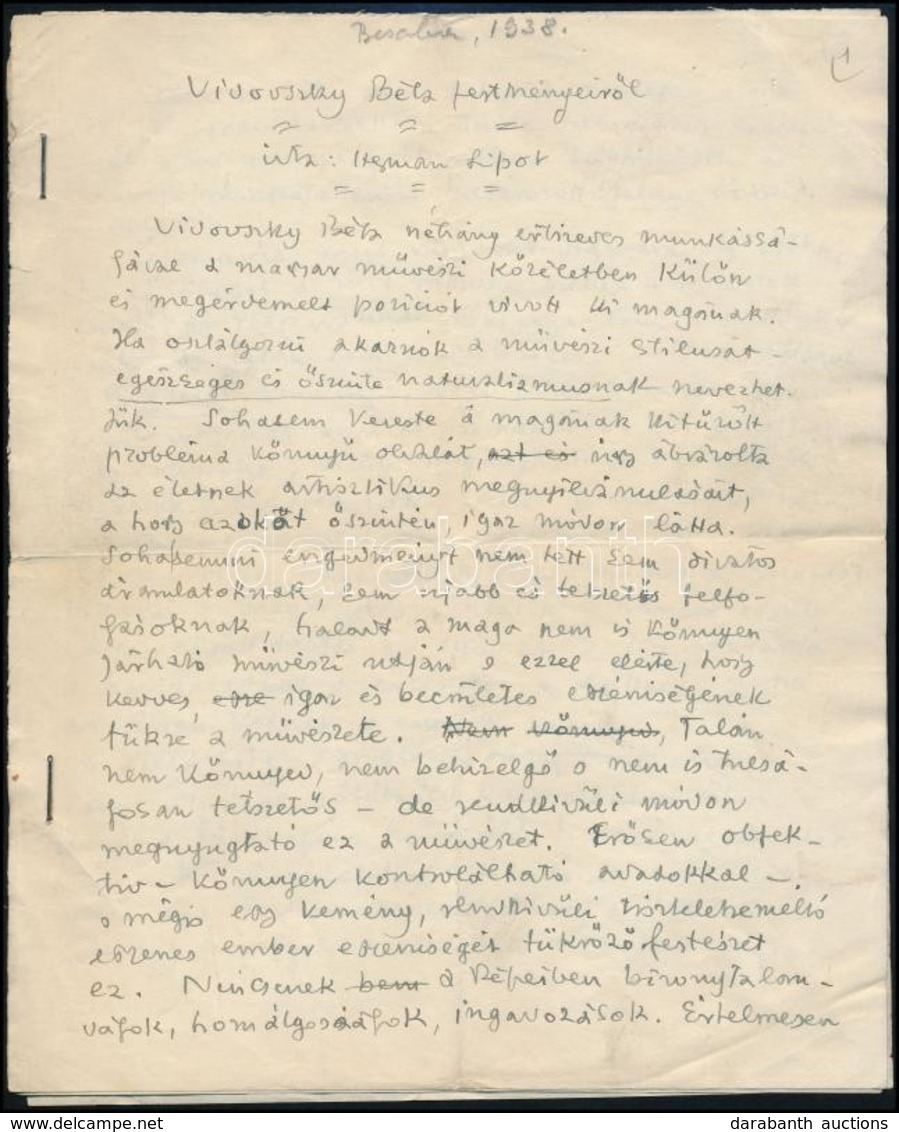 1938.
1
Vidovszky Béla festményeiről
irta: Herman Lipot
Vidovszky Béla néhány évtizedes munkássá-
gával a magyar művészi közéletben külön
és megérdemelt poziciót vivott ki magának.
Ha osztályozni akarnók a művészi stilusát -
egészséges és őszinte naturalizmusnak nevezhet-
jük. Sohasem kereste a magának kitűzött
probléma könnyű oldalát, azt és úgy ábrázolta
az életnek artisztikus megnyilvánulásait,
a hogy azokat őszintén, igaz módon látta.
Sohasemmi engedményt nem tett sem divatos
áramlatoknak, sem ujabb és tetszetős felfo-
gásoknak, haladt a maga nem is könnyen
járható művészi utján s ezzel elérte, hogy
kedves, igaz és becsületes egyéniségének
tükre a művészete. Nem könnyed, Talán
nem könnyed, nem behizelgő s nem is tulsá-
gosan tetszetős - de rendkivüli módon
megnyugtató ez a művészet. Erősen objek-
tiv - könnyen kontrolálható adatokkal -
s mégis egy kemény, rendkivüli tiszteletreméltó
eszenes ember egyéniségét tükröző festészet
ez. Nincsenek bem a képeiben bizonytalan-
ságok, homályosságok, ingadozások. Értelmesen
darabanth
darabanth auctions